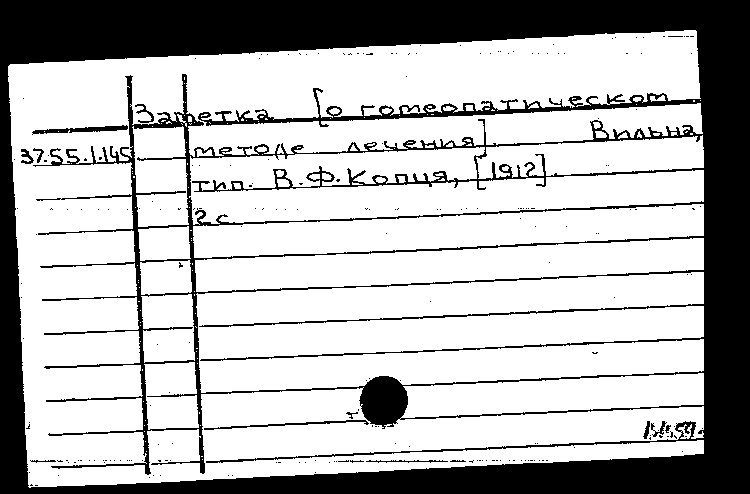 Заметка [о гомеопатическом
37.55.1.145 методе лечения]. Вильна,
тип. В.Ф.Копця, [1912].
2 с.